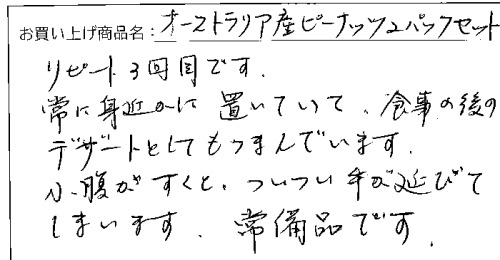 お買い上げ商品名：オーストラリア産ピーナッツ2パックセット
リピート3回目です.
常に身近かに置いていて、食事の後の
デザートとしてもつまんでいます.
小腹がすくと、ついつい手が延びて
しまいます、常備品です.